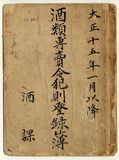 大正十五年一月以降
酒類專賣令犯則登錄簿
酒課